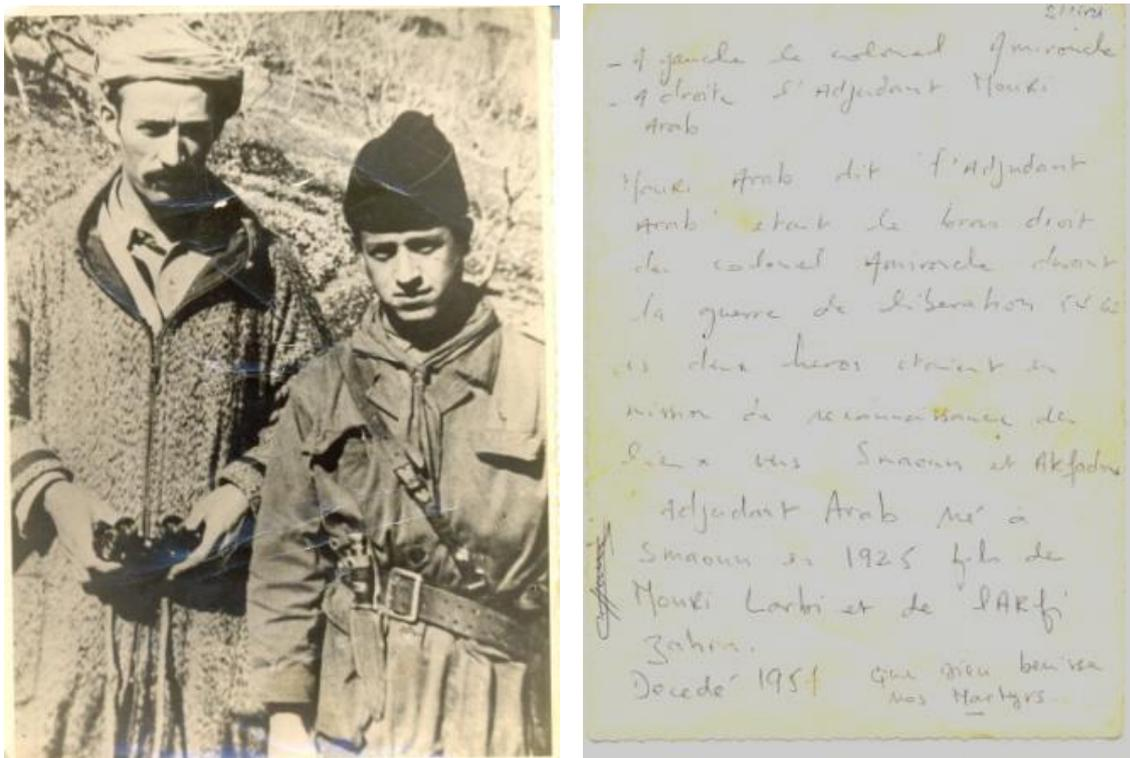 - A gauche le colonel Amirouche
- A droite l'Adjudant Mouri
Arab
Mouri Arab dit l'Adjudant
Arab etait le bras droit
du colonel Amirouche durant
la guerre de liberation
deux heros etaient en
mission de reconnaissance des
lieux vers Smaoun et Akfadou
Adjudant Arab né à
Smaoun en 1925 fils de
Mouri Larbi et de lARfi
Zahra.
Decedé 195 que Dieu benisse
nos Martyrs